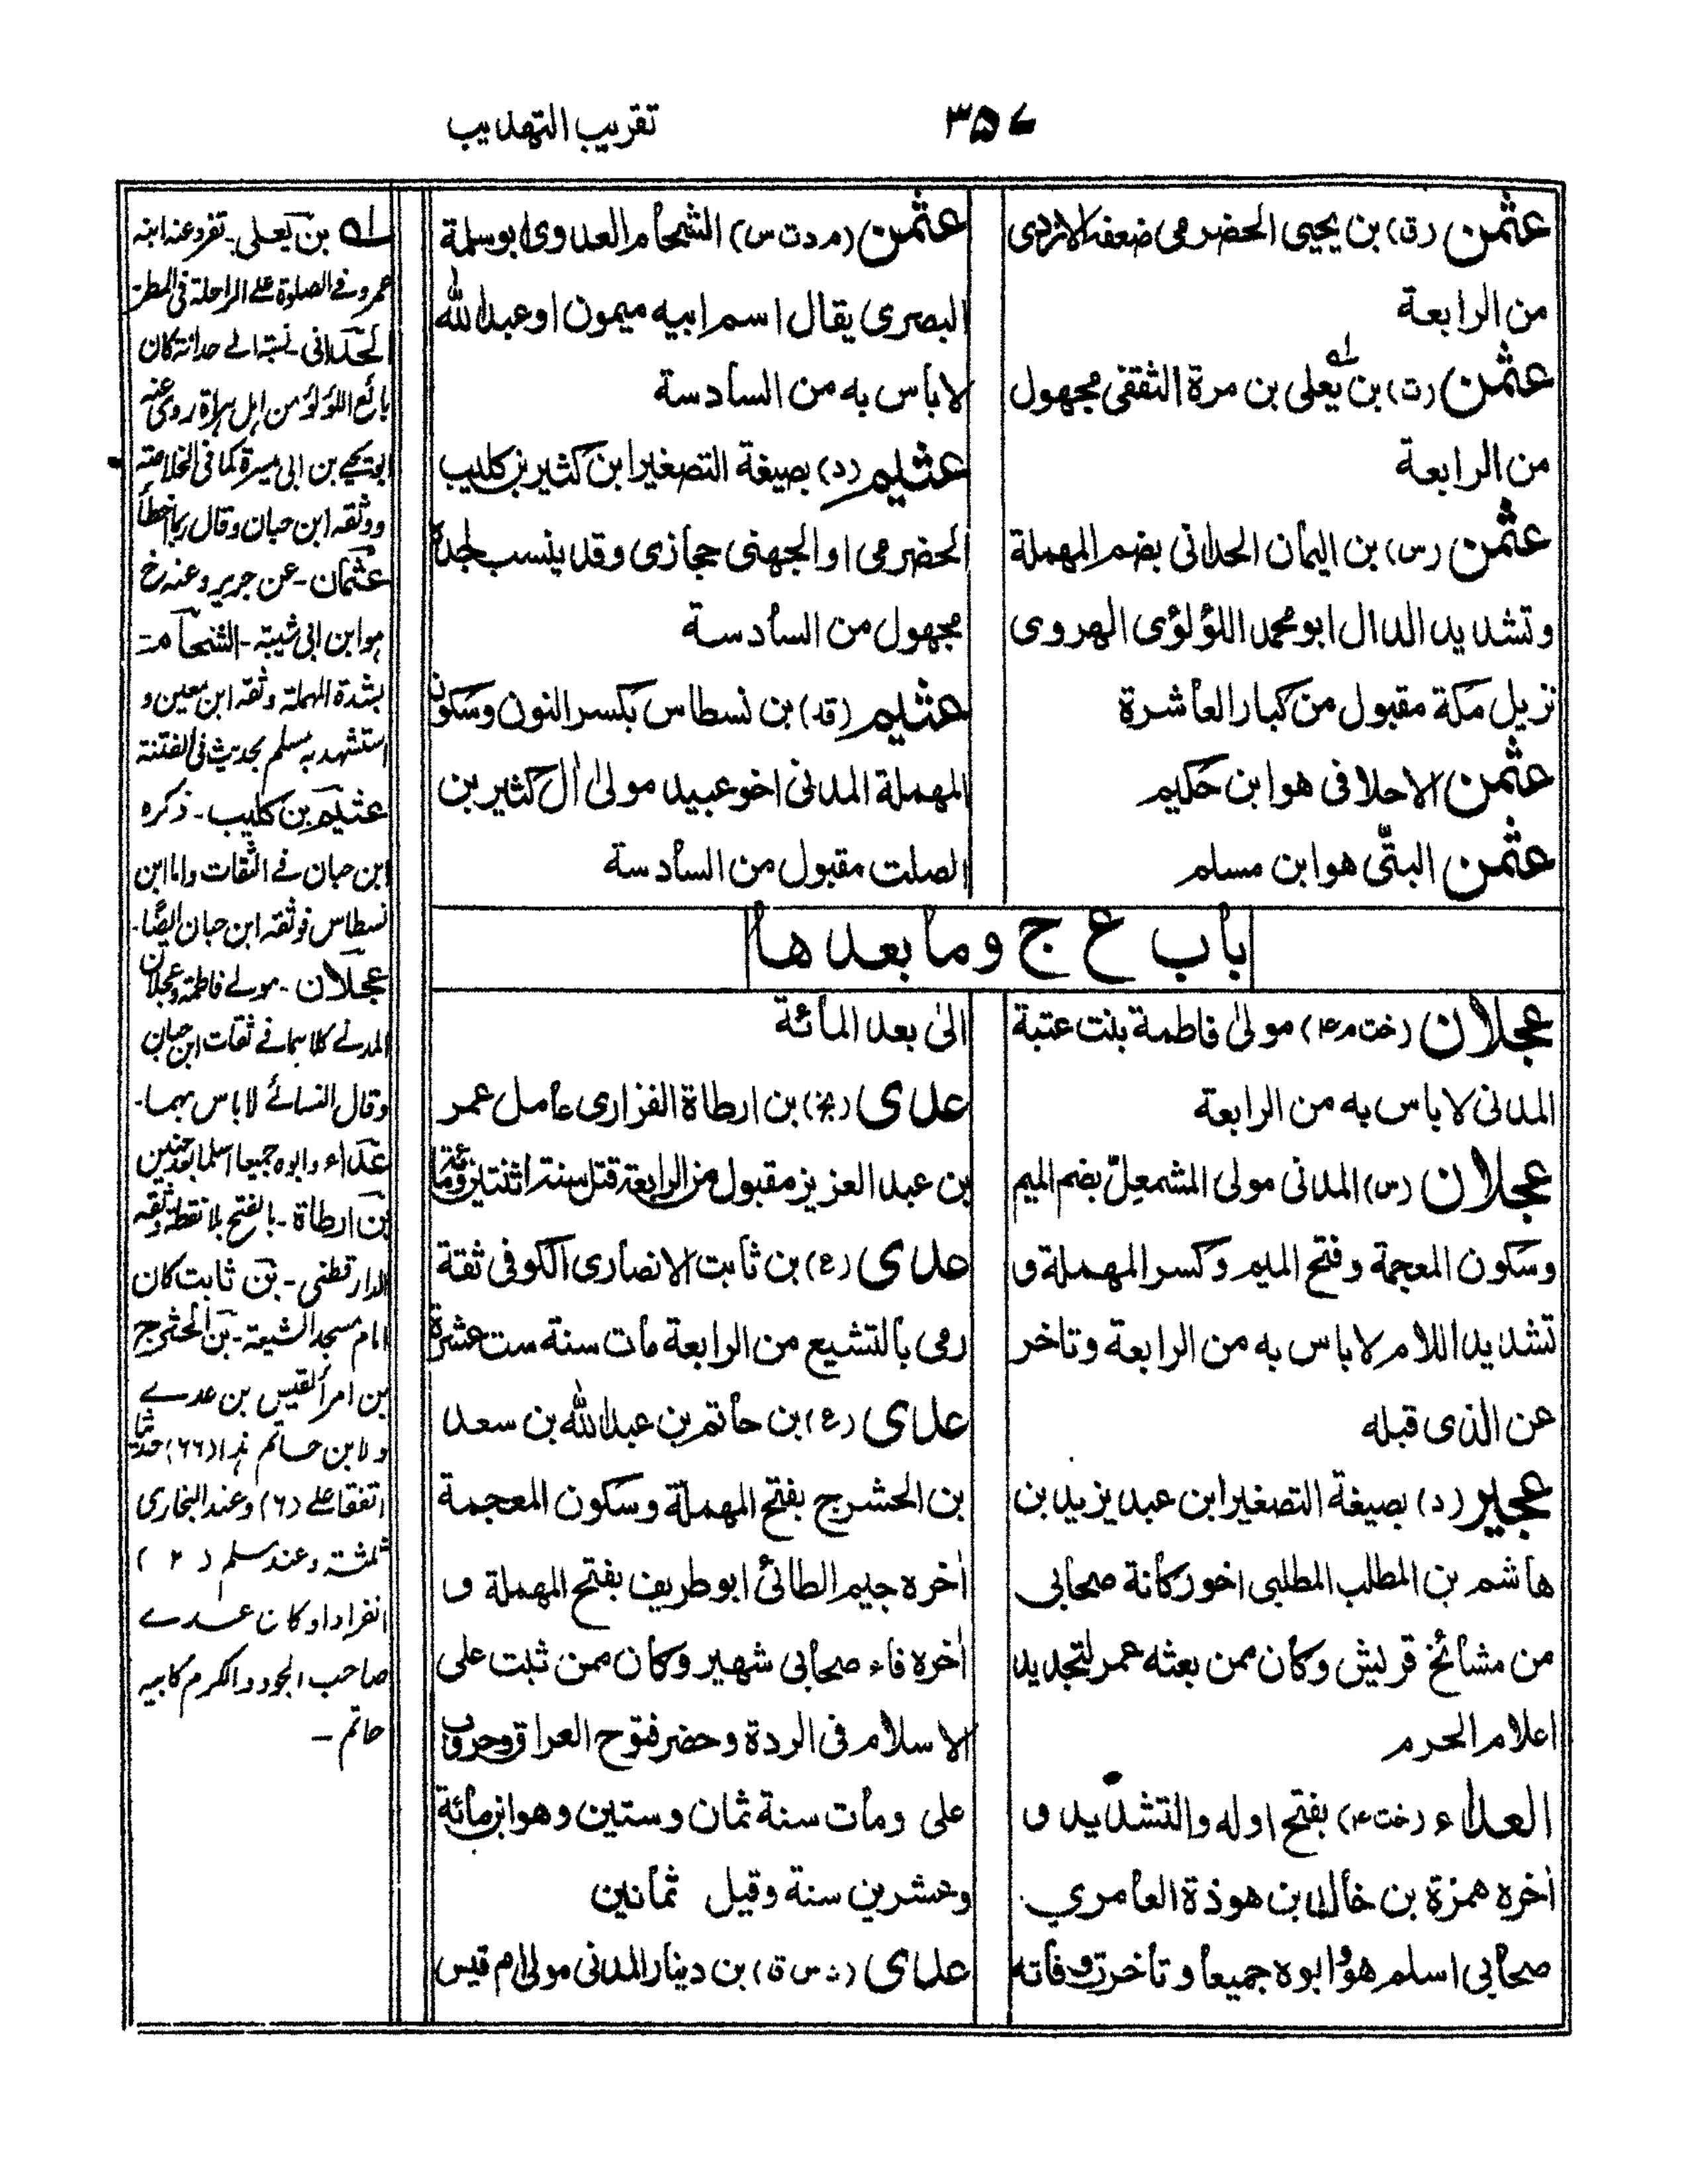 ۳۵۷
تقريب التهذيب
عثمن (ق) بن يحيى الحضرمى ضعفه الازدى
من الرابعة
عثمن (ت) بن يعلى بن مرة الثقفى مجهول
من الرابعة
عثمن (س) بن اليمان الحدانى بضم المهملة
وتشديد الدال ابو محمد اللؤلؤى الهروى
نزيل مكة مقبول من كبار العاشرة
عثمن الاحلافى هو ابن حكيم
عثمن البتّى هو ابن مسلم
عثمن (م د ت س) الشحام العدوى ابو سلمة
البصرى يقال اسم ابيه ميمون او عبد الله
لا باس به من السادسة
عثيم (د) بصيغة التصغير ابن كثير بن كليب
الحضرمى او الجهنى حجازى وقد ينسب لجده
مجهول من السادسة
عثيم (قد) بن نسطاس بكسر النون وسكون
المهملة المدنى اخو عبيد مولىٰ اٰل كثير بن
الصلت مقبول من السادسة
باب ع ج وما بعدها
عجلان (خت م ۴) مولىٰ فاطمة بنت عتبة
المدنى لا باس به من الرابعة
عجلان (س) المدنى مولى المشمعلّ بضم الميم
وسكون المعجمة وفتح الميم وكسر المهملة و
تشديد اللام لا باس به من الرابعة وتاخر
عن الذى قبله
عجير (د) بصيغة التصغير ابن عبد يزيد بن
هاشم بن المطلب المطلبى اخو ركانة صحابى
من مشائخ قريش وكان ممن بعثه عمر لتجديد
اعلام الحرم
العداء (خت ۴) بفتح اوله والتشديد و
اٰخره همزة بن خالد بن هوذة العامري
صحابى اسلم هو وابوه جميعا وتاخرت وفاته
الىٰ بعد المائة
عدى (بخ) بن ارطاة الفزارى عامل عمر
بن عبد العزيز مقبول من الرابعة قتل سنة اثنتين ومائة
عدى (ع) بن ثابت الانصارى الكوفى ثقة
رمى بالتشيع من الرابعة مات سنة ست عشرة
عدى (ع) بن حاتم بن عبد الله بن سعد
بن الحشرج بفتح المهملة وسكون المعجمة
اٰخره جيم الطائى ابو طريف بفتح المهملة و
اٰخره فاء صحابى شهير وكان ممن ثبت على
الاسلام فى الردة وحضر فتوح العراق وحروب
على ومات سنة ثمان وستين وهو ابن مائة
وعشرين سنة وقيل ثمانين
عدى (د س ق) بن دينار المدنى مولىٰ ام قيس
لـه بن يعلى - تفرد عنه ابنه
عمرو فے الصلوة علے الراحلة فى المطر
الحدانى - نسبة الے حدانة كان
بائع اللؤلؤ من اہل ہراة روى عنه
ابو يحيے بن ابى ميسرة كما فى الخلاصة
ووثقه ابن حبان وقال ربما اخطأ
عثمان - عن جرير وعنه خ
ہو ابن ابى شيبة - الشحام -
بشدة المہملة وثقه ابن معين و
استشہد به مسلم بحديث فى الفتنة
عثيم بن كليب - ذكره
ابن حبان فے الثقات واما ابن
نسطاس فوثقه ابن حبان ايضًا -
عجلان - مولے فاطمة وعجلان
المدنے كلاہما فے ثقات ابن حبان
وقال النسائے لا باس بہما -
عداء وابوه جميعا اسلما بعد حنين
بن ارطاة - بالفتح بلا نقطة وثقه
الدارقطنى - بن ثابت كان
امام مسجد الشيعة - بن الحشرج
بن امرأ القيس بن عدے
ولابن حاتم ہذا (۶۶) حديثا
اتفقا علے (۶) وعند البخارى
ثلثة وعند مسلم (۲)
انفرادا وكان عدے
صاحب الجود والكرم كابيه
حاتم -